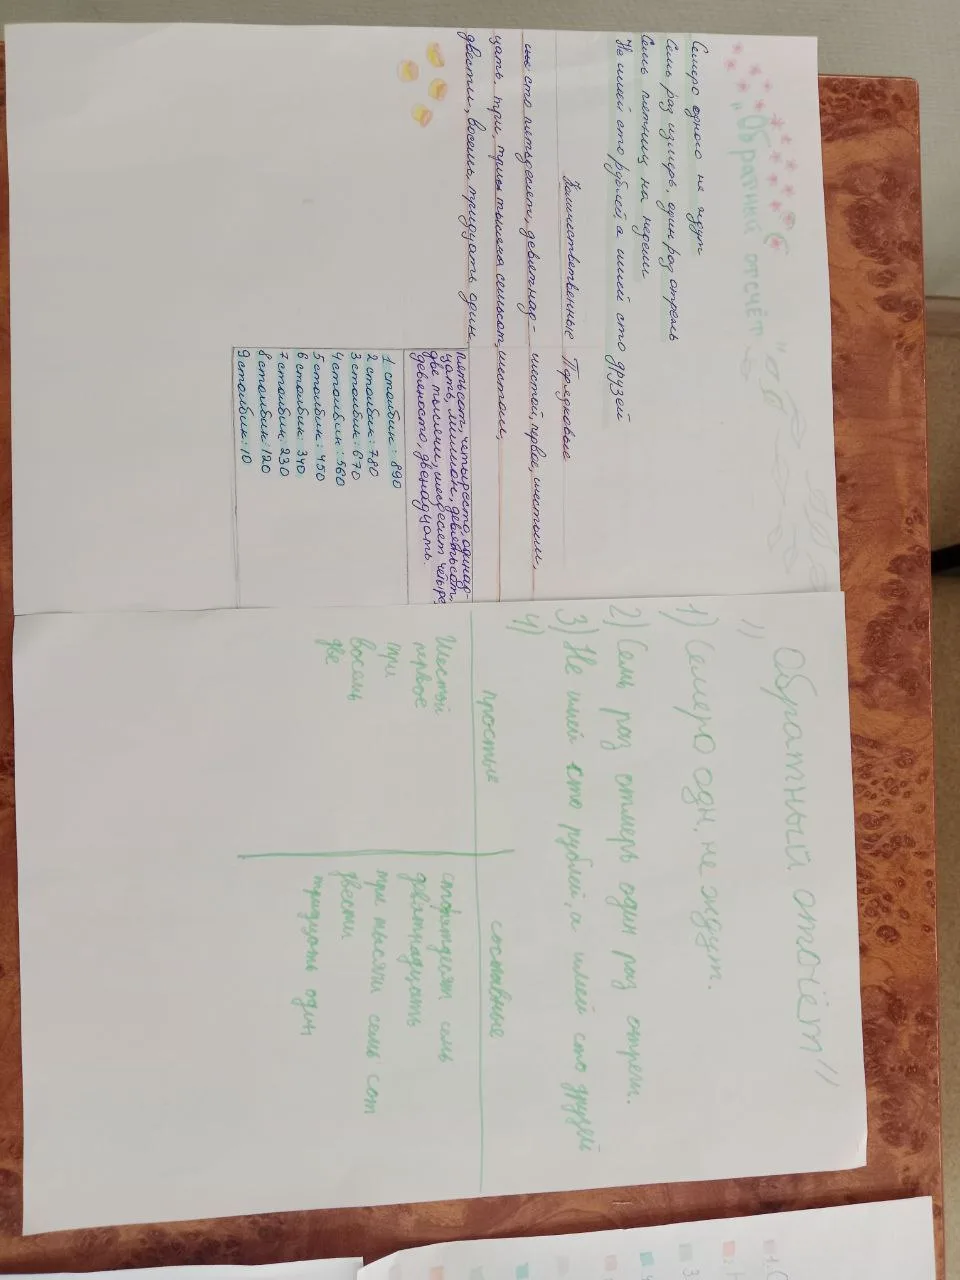 „Обратный отсчёт"
Семеро одного не ждут
Семь раз измерь, один раз отрежь
Семь пятниц на неделе
Не имей сто рублей, а имей сто друзей
Количественные Порядковые
сто пятьдесят, девятнад- шестой, первое, шестьсот,
цать, три, три тысяча семьсот, шестом,
двести, восемь, тридцать один
пятьсот, четыреста, одинад-
цать, миллион, девятьсот,
две тысячи, шесдесят четыре
девяносто, двенадцать.
1 столбик: 890
2 столбик: 780
3 столбик: 670
4 столбик: 560
5 столбик: 450
6 столбик: 340
7 столбик: 230
8 столбик: 120
9 столбик: 10
"Обратный отсчёт"
1) Семеро одн. не ждут.
2) Семь раз отмерь один раз отреж.
3) Не имей сто рублей, а имей сто друзей
4)
простые составные
Шестой стопятдесят семь
первое девятнадцать
три три тысячи семь сот
восемь двести
две тридцать один